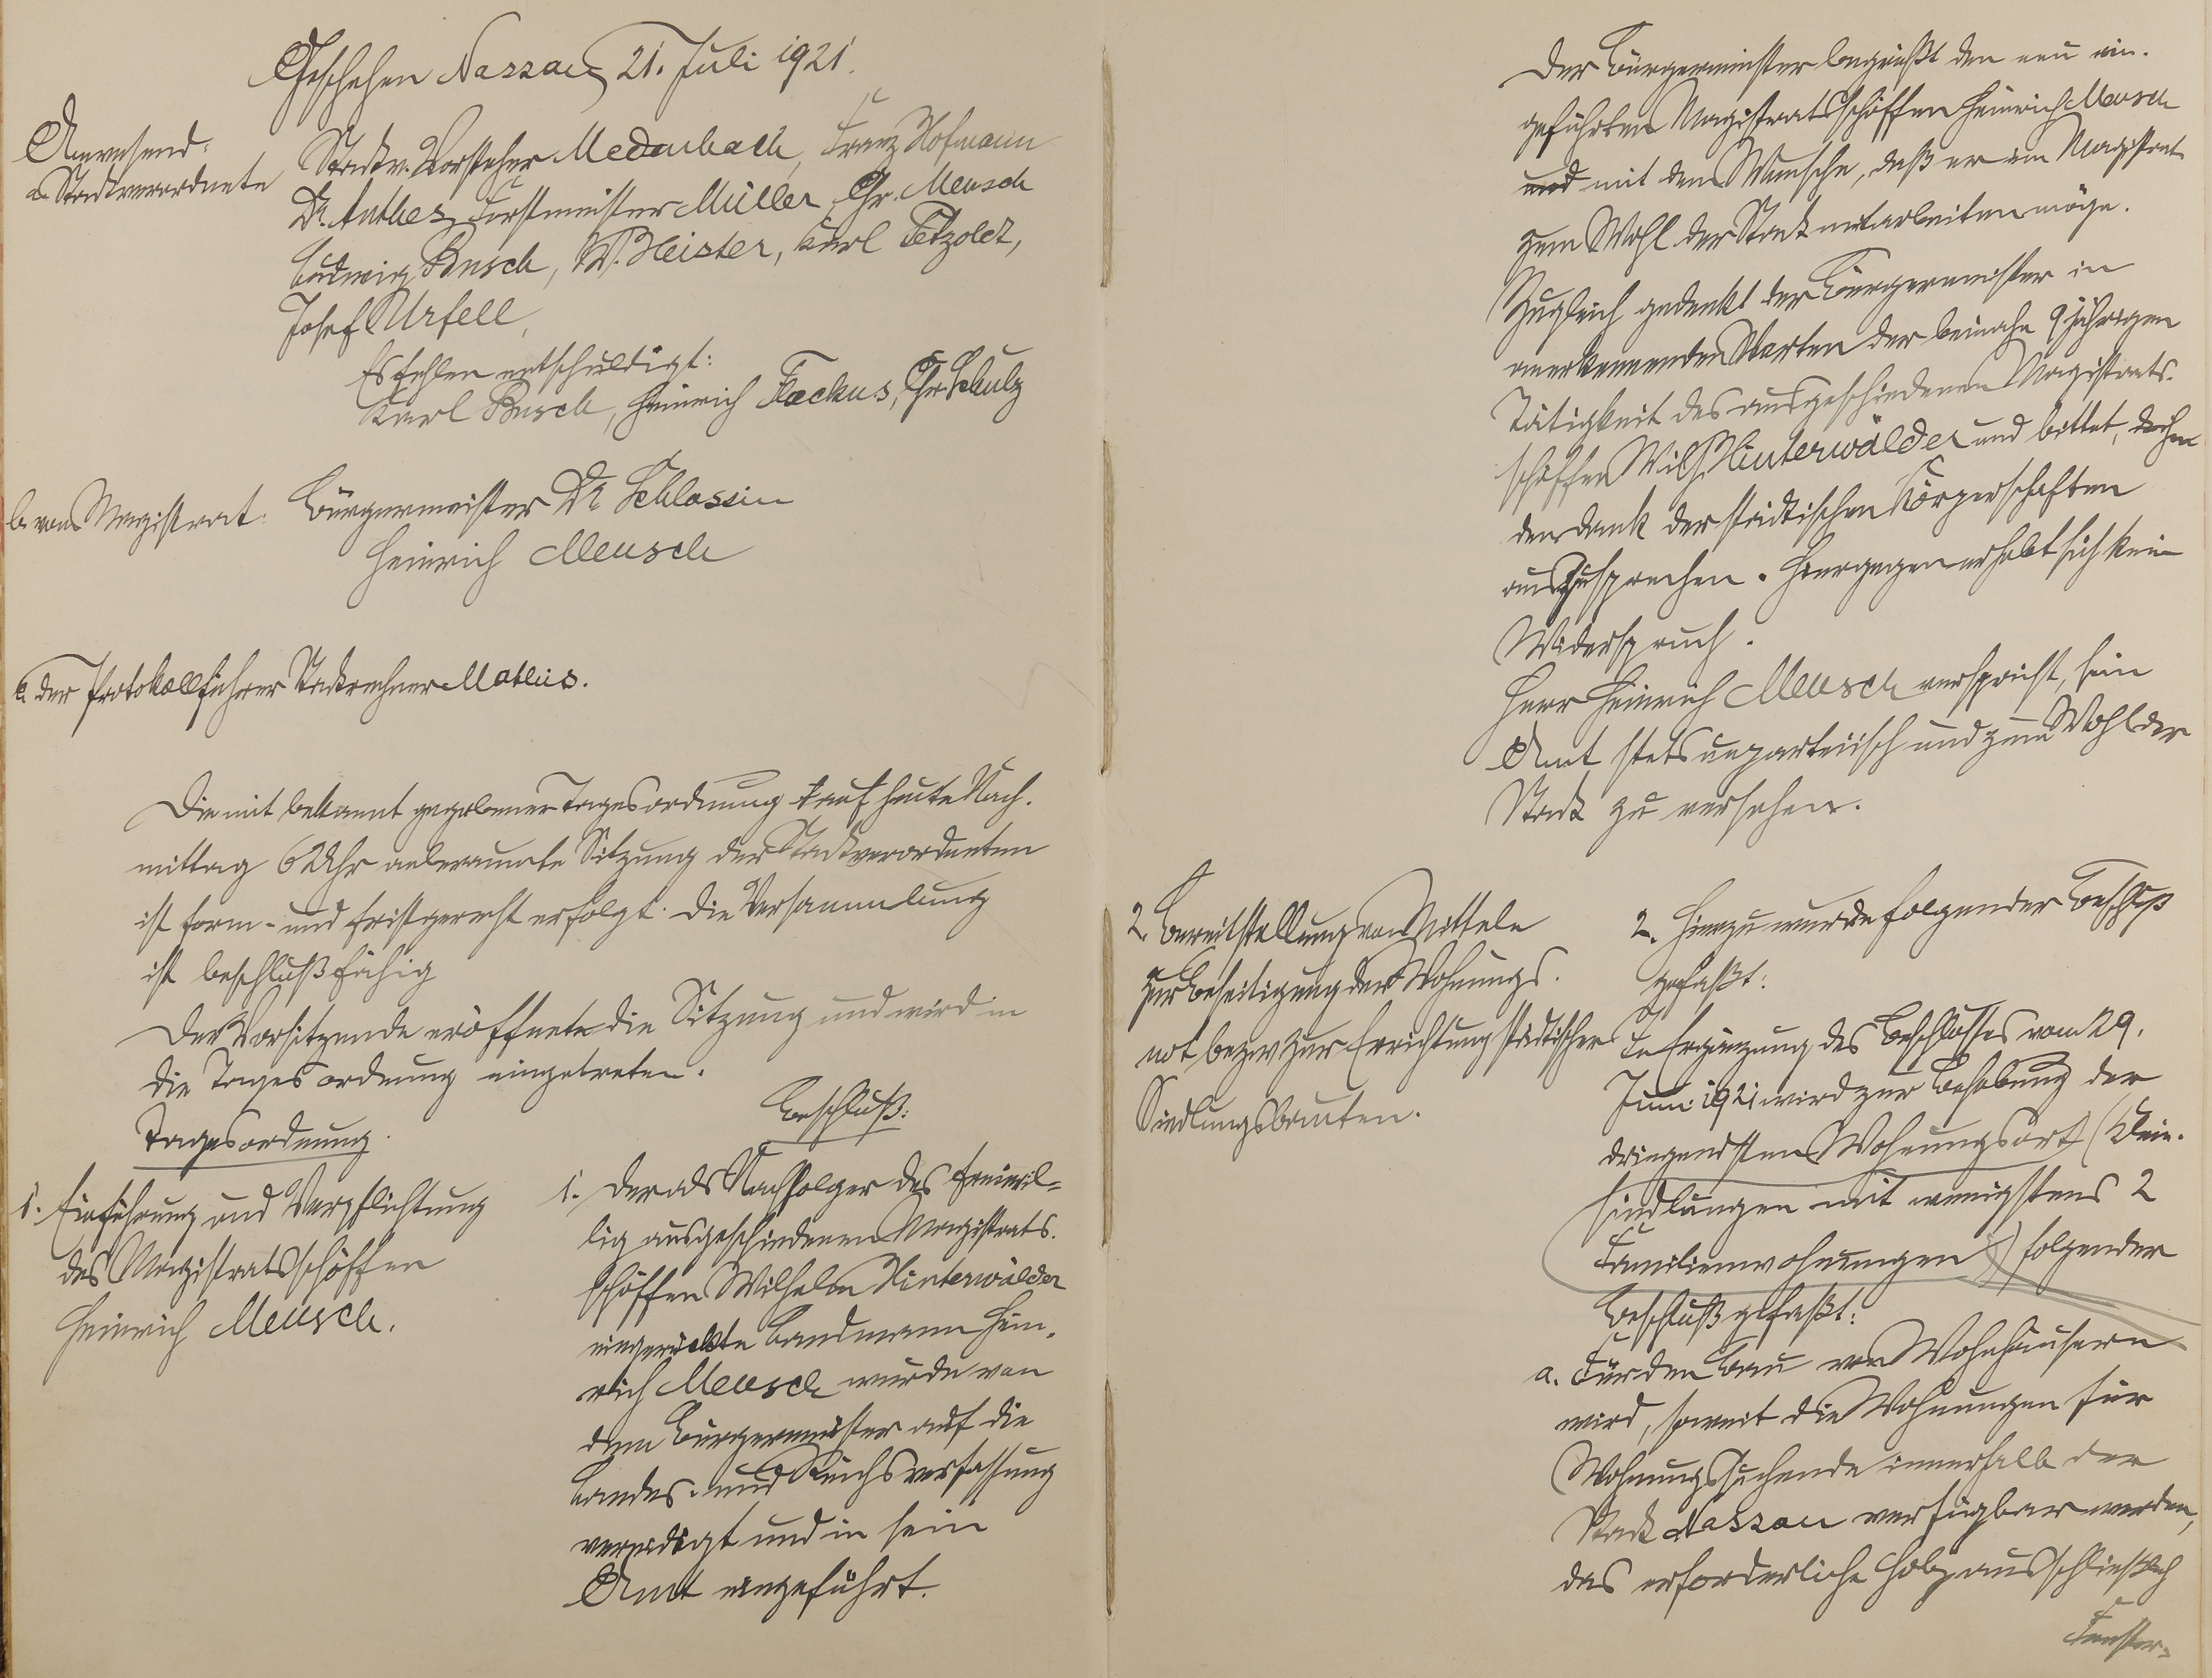 Geschehen Nassau, 21. Juli 1921.
Anwesend:
a. Stadtverordnete
Stadtv. Vorsteher Medenbach, Franz Hofmann
Dr. Anthes, Forstmeister Müller, Chr. Mensch
Ludwig Busch, W. Heister, Karl Petzold,
Josef Urfell,
Es fehlen entschuldigt:
Karl Busch, Heinrich Flackus, Chr. Schulz
b. vom Magistrat:
Bürgermeister Dr. Schlossin
Heinrich Mensch
c. der Protokollführer Stadtrechner Matheis.
Die mit bekannt gegebener Tagesordnung auf heute Nach-
mittag 6 Uhr anberaumte Sitzung der Stadtverordneten
ist form- und fristgerecht erfolgt. Die Versammlung
ist beschlußfähig
Der Vorsitzende eröffnete die Sitzung und wird in
die Tagesordnung eingetreten.
Tagesordnung.
Beschluß:
1. Einführung und Verpflichtung
des Magistratsschöffen
Heinrich Mensch.
1. Der als Nachfolger des freiwil-
lig ausgeschiedenen Magistrats-
schöffen Wilhelm Hinterwälder
eingerückte Landmann Hein-
rich Mensch wurde von
dem Bürgermeister auf die
Landes- und Reichsverfassung
vereidigt und in sein
Amt eingeführt.
Der Bürgermeister begrüßt den neu ein-
geführten Magistratsschöffen Heinrich Mensch
und mit dem Wunsche, daß er im Magistrat
zum Wohl der Stadt mitarbeiten möge.
Zugleich gedenkt der Bürgermeister in
anerkennenden Worten der beinahe 9 jährigen
Tätigkeit des ausgeschiedenen Magistrats-
schöffen Wilh. Hinterwälder und bittet, ihm
den Dank der städtischen Körperschaften
auszusprechen. Hiergegen erhebt sich kein
Widerspruch.
Herr Heinrich Mensch verspricht, sein
Amt stets unparteiisch und zum Wohl der
Stadt zu versehen.
2. Bereitstellung von Mitteln
zur Beseitigung der Wohnungs-
not bezw. zur Errichtung städtischer
Siedlungsbauten.
2. Hierzu wurde folgender Beschluß
gefaßt:
In Ergänzung des Beschlusses vom 29.
Juni 1921 wird zur Behebung der
dringendsten Wohnungsnot (Klein-
siedlungen mit wenigstens 2
Familienwohnungen) folgender
Beschluß gefaßt:
a. Für den Bau von Wohnhäusern
wird, soweit die Wohnungen für
Wohnungssuchende innerhalb der
Stadt Nassau verfügbar werden,
das erforderliche Holz ausschließlich
Fenster-